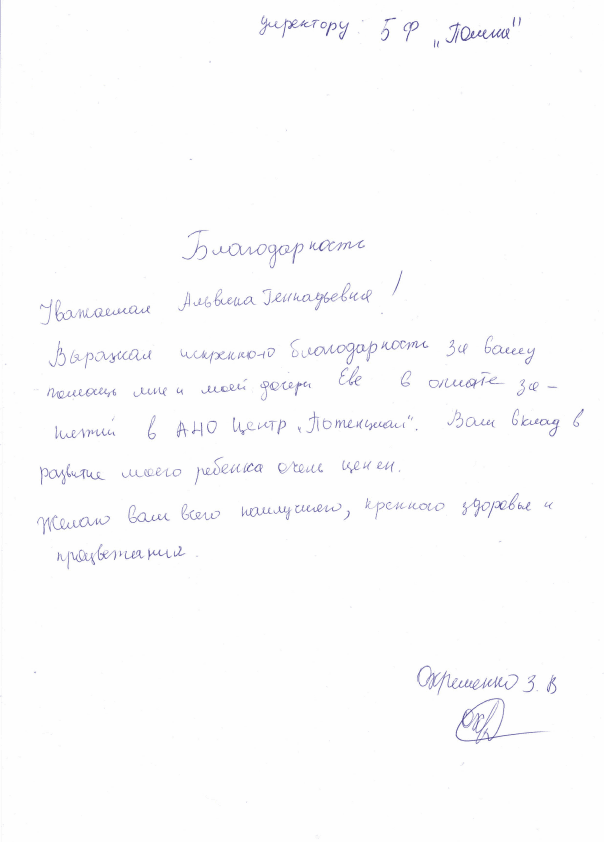 директору БФ „Помни"
Благодарность
Уважаемая Альвина Геннадьевна!
Выражая искреннюю благодарность за вашу
помощь мне и моей дочери Еве в оплате за-
нятий в АНО Центр „Потенциал". Ваш вклад в
развитие моего ребенка очень ценен.
Желаю вам всего наилучшего, крепкого здоровья и
процветания.
Охременко З. В